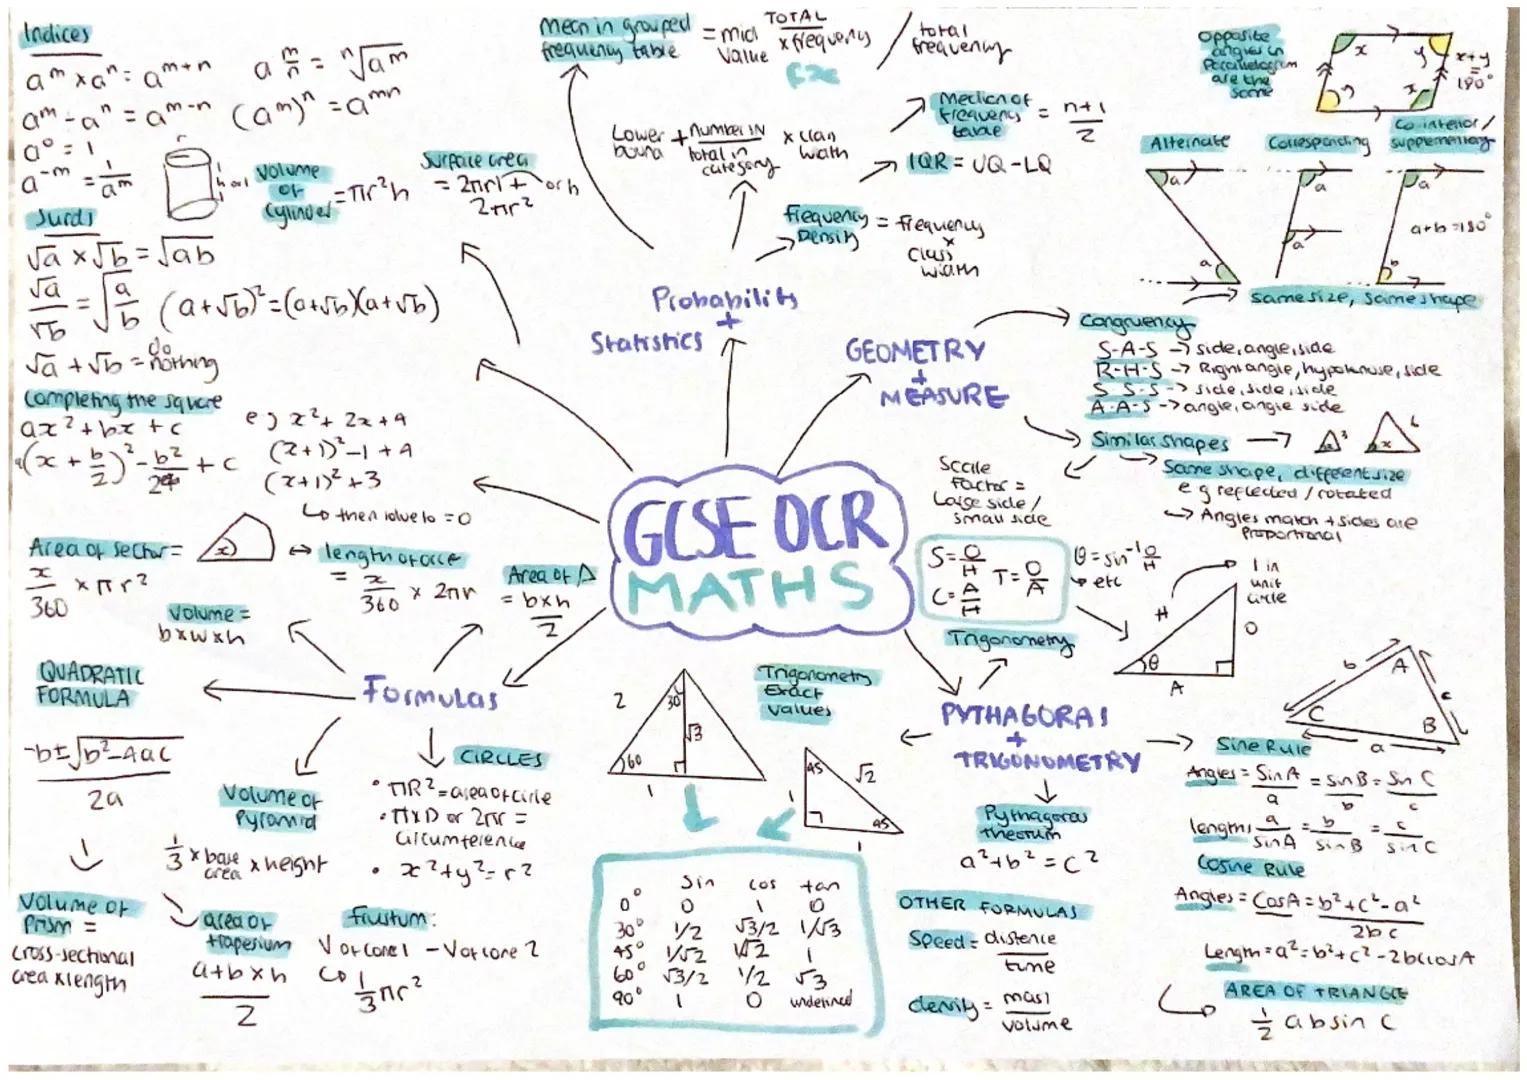 Indices
aᵐ × aⁿ = aᵐ⁺ⁿ
a^(m/n) = ⁿ√aᵐ
aᵐ - aⁿ = aᵐ⁻ⁿ
(aᵐ)ⁿ = aᵐⁿ
a⁰ = 1
a⁻ᵐ = 1/aᵐ
r
h or l
Volume
of
cylinder
= πr²h
Surface area
= 2πrl + or h
2πr²
Surds
√a × √b = √ab
√a/√b = √(a/b)
(a+√b)² = (a+√b)(a+√b)
√a + √b = do
nothing
Completing the square
ax² + bx + c
a(x + b/2)² - b²/2 + c
eg x² + 2x + 4
(x+1)² - 1 + 4
(x+1)² + 3
↳ then solve to = 0
Area of sector =
x
↔ length of arc
x/360 × πr²
= x/360 × 2πr
Area of Δ
= b×h
2
Volume =
b×w×h
QUADRATIC
FORMULA
-b±√b²-4ac
2a
Formulas
Volume of
Pyramid
1/3 × base area × height
CIRCLES
• πR² = area of circle
• π×D or 2πr =
circumference
• x² + y² = r²
Volume of
Prism =
cross-sectional
area × length
area of
trapesium
a+b×h
2
frustum:
V of cone 1 - V of cone 2
↳ 1/3 πr²
Mean in grouped
frequency table
= mid value × frequency
TOTAL
fx
/ total
frequency
Lower
bound
+ number in
total in
category
× class
width
Median of
frequency
table
= n+1
2
IQR = UQ - LQ
frequency
Density
= frequency
×
class
width
Probability
+
Statistics
GEOMETRY
+
MEASURE
GCSE OCR
MATHS
Opposite
angles in
Parallelogram
are the
same
x
y
y
x
x+y
=
180°
Alternate
Corresponding
Co interior/
supplementary
a
a
a
a
a
b
a+b=180°
→ same size, same shape
Congruency
S-A-S → side, angle, side
R-H-S → Right angle, hypotenuse, side
S-S-S → side, side, side
A-A-S → angle, angle side
Similar shapes
3
x
6
→ Same shape, different size
eg reflected / rotated
→ Angles match + sides are
proportional
Scale
factor =
Large side /
small side
S = O/H
C = A/H
T = O/A
θ = sin⁻¹ O/H
↳ etc
Trigonometry
H
θ
A
O
1 in
unit
circle
PYTHAGORAS
+
TRIGONOMETRY
Trigonometry
Exact
values
2
30
√3
60
1
45
√2
1
45
1
sin cos tan
0° 0 1 0
30° 1/2 √3/2 1/√3
45° 1/√2 1/√2 1
60° √3/2 1/2 √3
90° 1 0 undefined
Pythagoras
theorum
a² + b² = c²
OTHER FORMULAS
Speed = distance
time
density = mass
volume
b
A
c
C
B
a
Sine Rule
Angles = Sin A/a = sin B/b = Sin C/c
lengths a/sin A = b/sin B = c/sin C
Cosine Rule
Angles = Cos A = b²+c²-a²
2bc
Length = a² = b²+c²-2bccosA
AREA OF TRIANGLE
1/2 absin C